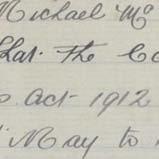 Michael Mc
That. The Co
act - 1912
May to